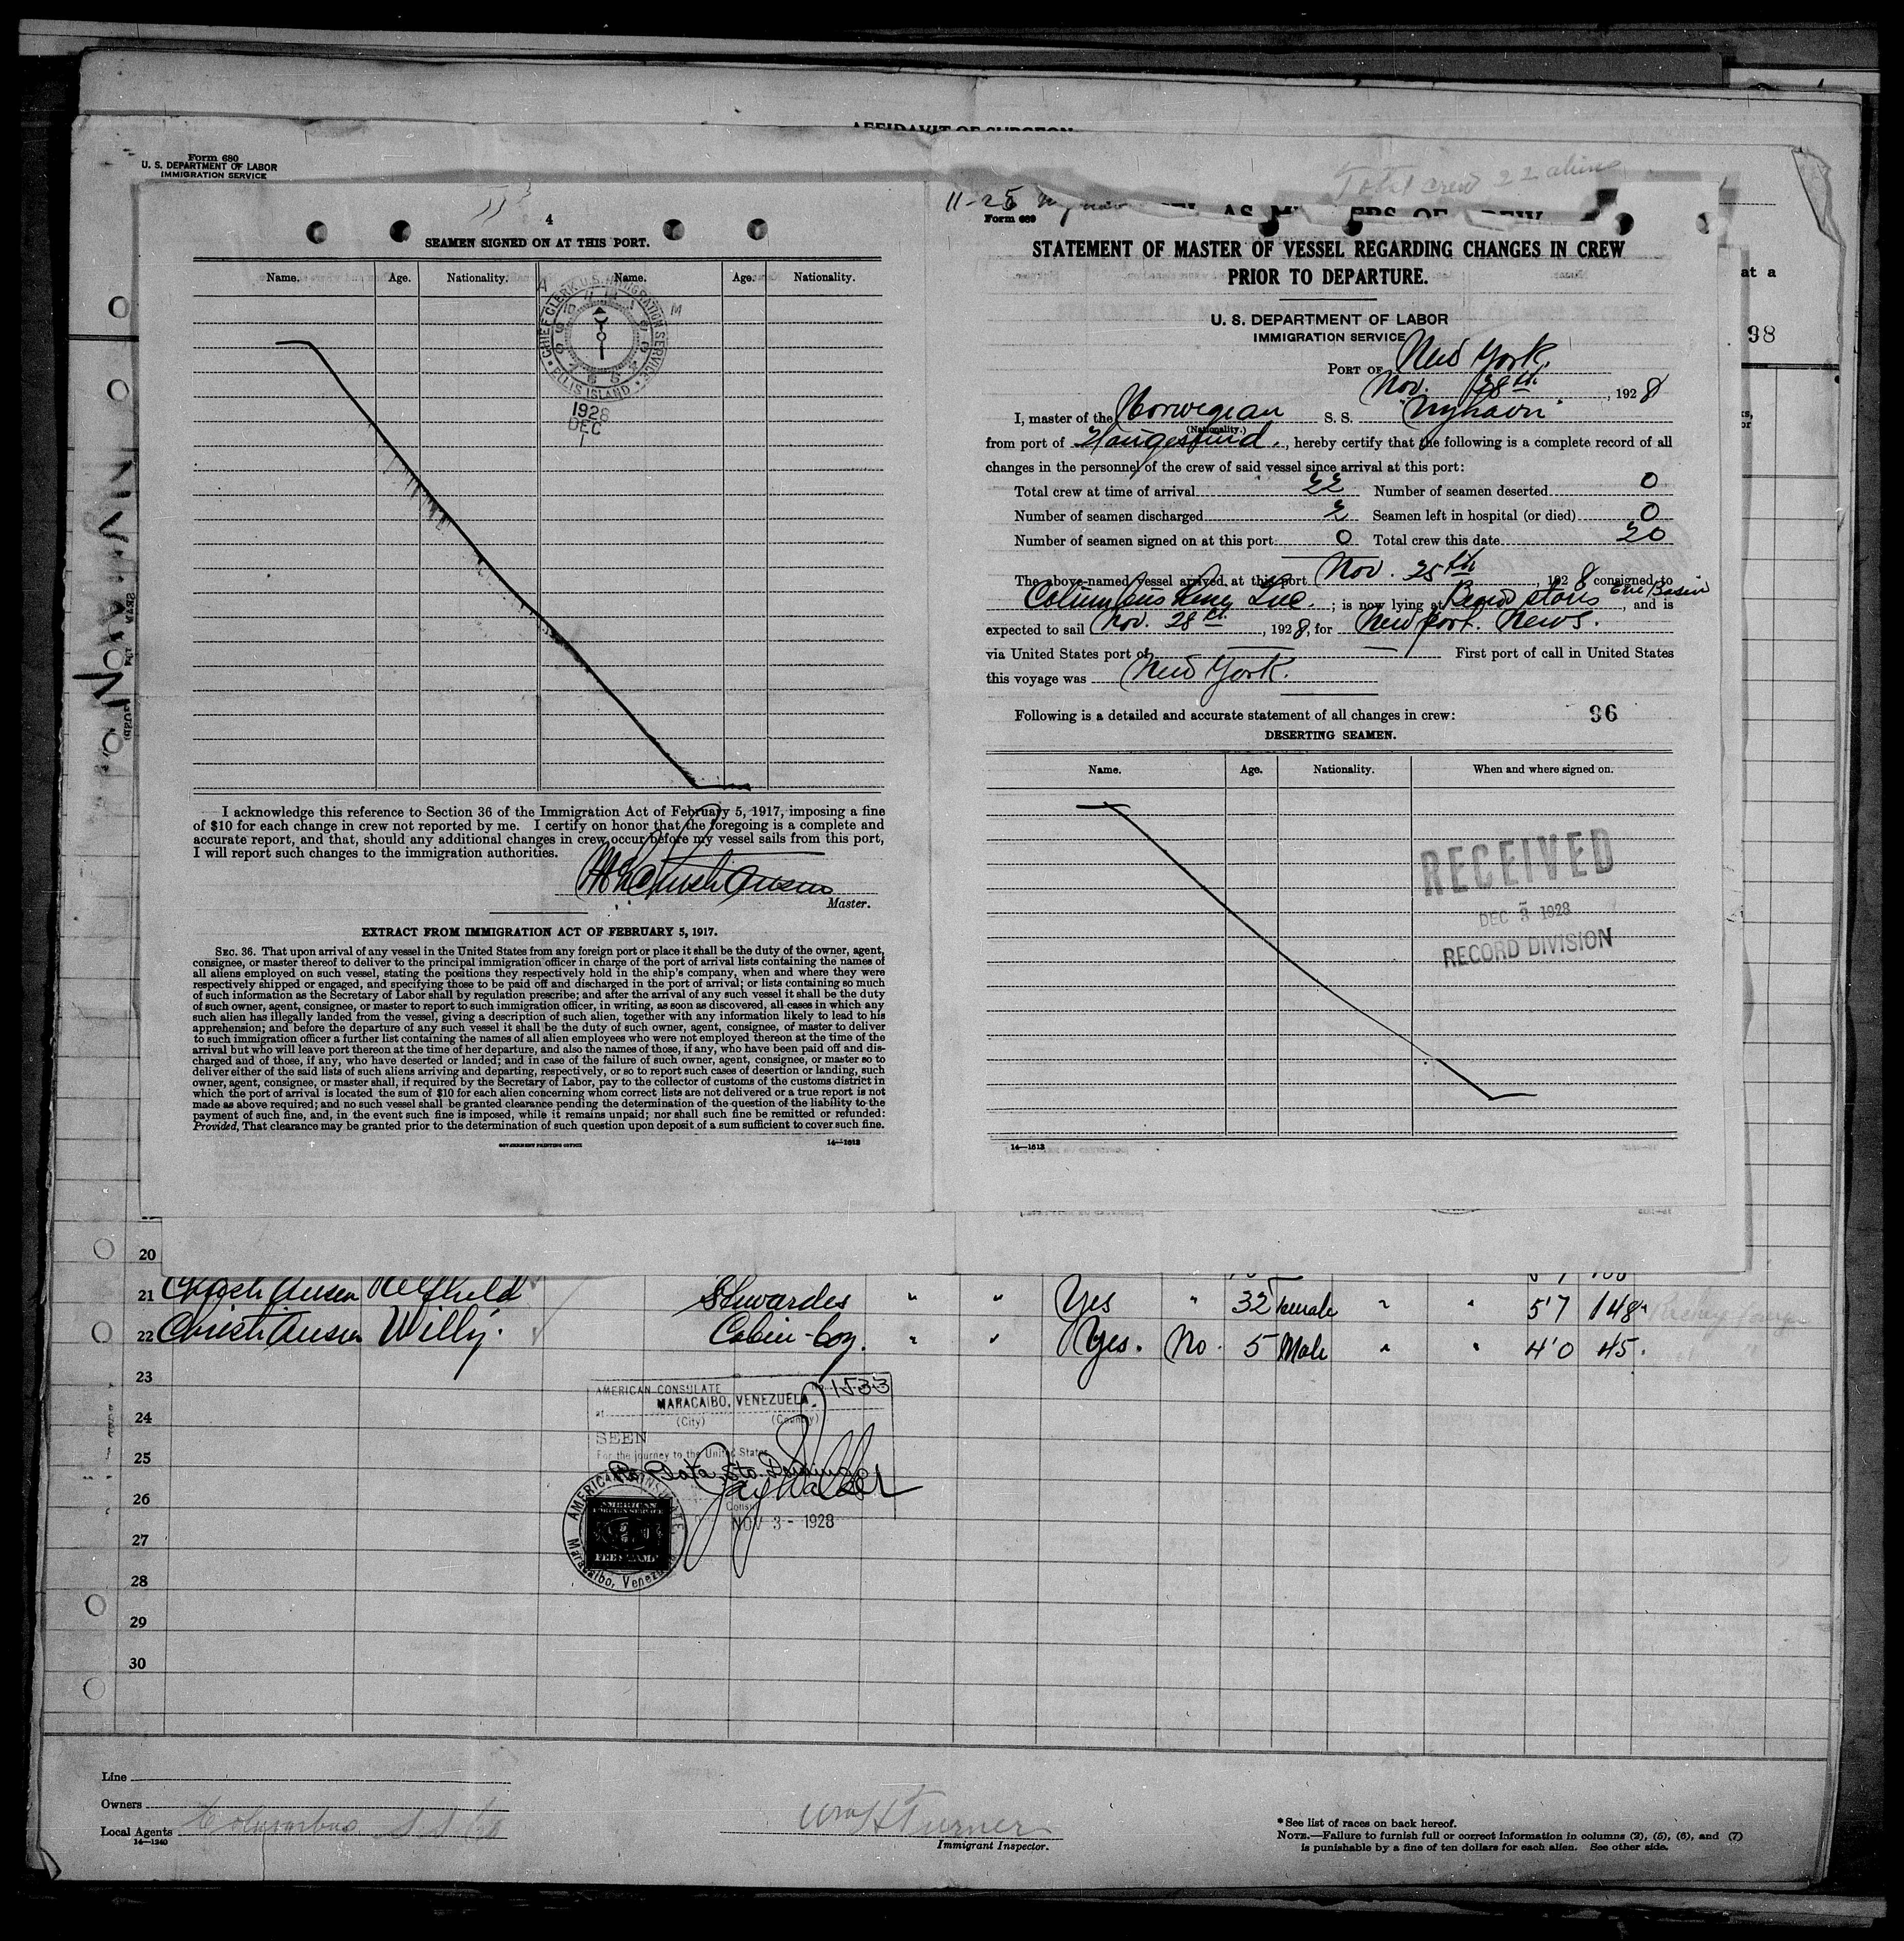 AFFIDAVIT OF SURGEON
Form 680
U. S. DEPARTMENT OF LABOR
IMMIGRATION SERVICE
Total crew 22 aliens
4
SEAMEN SIGNED ON AT THIS PORT.
Name. Age. Nationality. Name. Age. Nationality.
CHIEF CLERK U.S. IMMIGRATION SERVICE
ELLIS ISLAND
1928
DEC
1
I acknowledge this reference to Section 36 of the Immigration Act of February 5, 1917, imposing a fine
of $10 for each change in crew not reported by me. I certify on honor that the foregoing is a complete and
accurate report, and that, should any additional changes in crew occur before my vessel sails from this port,
I will report such changes to the immigration authorities.
Master.
EXTRACT FROM IMMIGRATION ACT OF FEBRUARY 5, 1917.
SEC. 36. That upon arrival of any vessel in the United States from any foreign port or place it shall be the duty of the owner, agent,
consignee, or master thereof to deliver to the principal immigration officer in charge of the port of arrival lists containing the names of
all aliens employed on such vessel, stating the positions they respectively hold in the ship's company, when and where they were
respectively shipped or engaged, and specifying those to be paid off and discharged in the port of arrival; or lists containing so much
of such information as the Secretary of Labor shall by regulation prescribe; and after the arrival of any such vessel it shall be the duty
of such owner, agent, consignee, or master to report to such immigration officer, in writing, as soon as discovered, all cases in which any
such alien has illegally landed from the vessel, giving a description of such alien, together with any information likely to lead to his
apprehension; and before the departure of any such vessel it shall be the duty of such owner, agent, consignee, of master to deliver
to such immigration officer a further list containing the names of all alien employees who were not employed thereon at the time of the
arrival but who will leave port thereon at the time of her departure, and also the names of those, if any, who have been paid off and dis-
charged and of those, if any, who have deserted or landed; and in case of the failure of such owner, agent, consignee, or master so to
deliver either of the said lists of such aliens arriving and departing, respectively, or so to report such cases of desertion or landing, such
owner, agent, consignee, or master shall, if required by the Secretary of Labor, pay to the collector of customs of the customs district in
which the port of arrival is located the sum of $10 for each alien concerning whom correct lists are not delivered or a true report is not
made as above required; and no such vessel shall be granted clearance pending the determination of the question of the liability to the
payment of such fine, and, in the event such fine is imposed, while it remains unpaid; nor shall such fine be remitted or refunded:
Provided, That clearance may be granted prior to the determination of such question upon deposit of a sum sufficient to cover such fine.
GOVERNMENT PRINTING OFFICE 14—1612
11-25
Form 689
STATEMENT OF MASTER OF VESSEL REGARDING CHANGES IN CREW
PRIOR TO DEPARTURE.
U. S. DEPARTMENT OF LABOR
IMMIGRATION SERVICE
PORT OF New York.
Nov. 28th, 1928
I, master of the Norwegian S. S. "Nyhavn"
(Nationality.)
from port of Haugesund., hereby certify that the following is a complete record of all
changes in the personnel of the crew of said vessel since arrival at this port:
Total crew at time of arrival 22 Number of seamen deserted 0
Number of seamen discharged 2 Seamen left in hospital (or died) 0
Number of seamen signed on at this port 0 Total crew this date 20
The above-named vessel arrived at this port Nov. 25th, 1928 consigned to
Columbus Line Inc.; is now lying at Beard stores Erie Basin, and is
expected to sail Nov. 28th, 1928, for Newport. News.
via United States port of — — First port of call in United States
this voyage was New York.
Following is a detailed and accurate statement of all changes in crew: 96
DESERTING SEAMEN.
Name. Age. Nationality. When and where signed on.
RECEIVED
DEC 3 1928
RECORD DIVISION
14—1612
at a
98
20
21 Christiansen Stewardes " " Yes " 32 Female " " 5'7 148
22 Christiansen Willy. Cabin-boy. " " Yes. No. 5 Male " " 4'0 45.
23
24
25
26
27
28
29
30
AMERICAN CONSULATE 1533
at MARACAIBO, VENEZUELA
(City) (Country)
SEEN
For the journey to the United States
Pto Plata, Sto. Domingo
Jay Walker
Consul
NOV 3 - 1928
AMERICAN CONSULATE
Maracaibo, Venezuela
AMERICAN
FOREIGN SERVICE
2
FEE STAMP
Line
Owners
Local Agents Columbus S S Co
14—1240
Wm H Turner
Immigrant Inspector.
*See list of races on back hereof.
NOTE.—Failure to furnish full or correct information in columns (2), (5), (6), and (7)
is punishable by a fine of ten dollars for each alien. See other side.